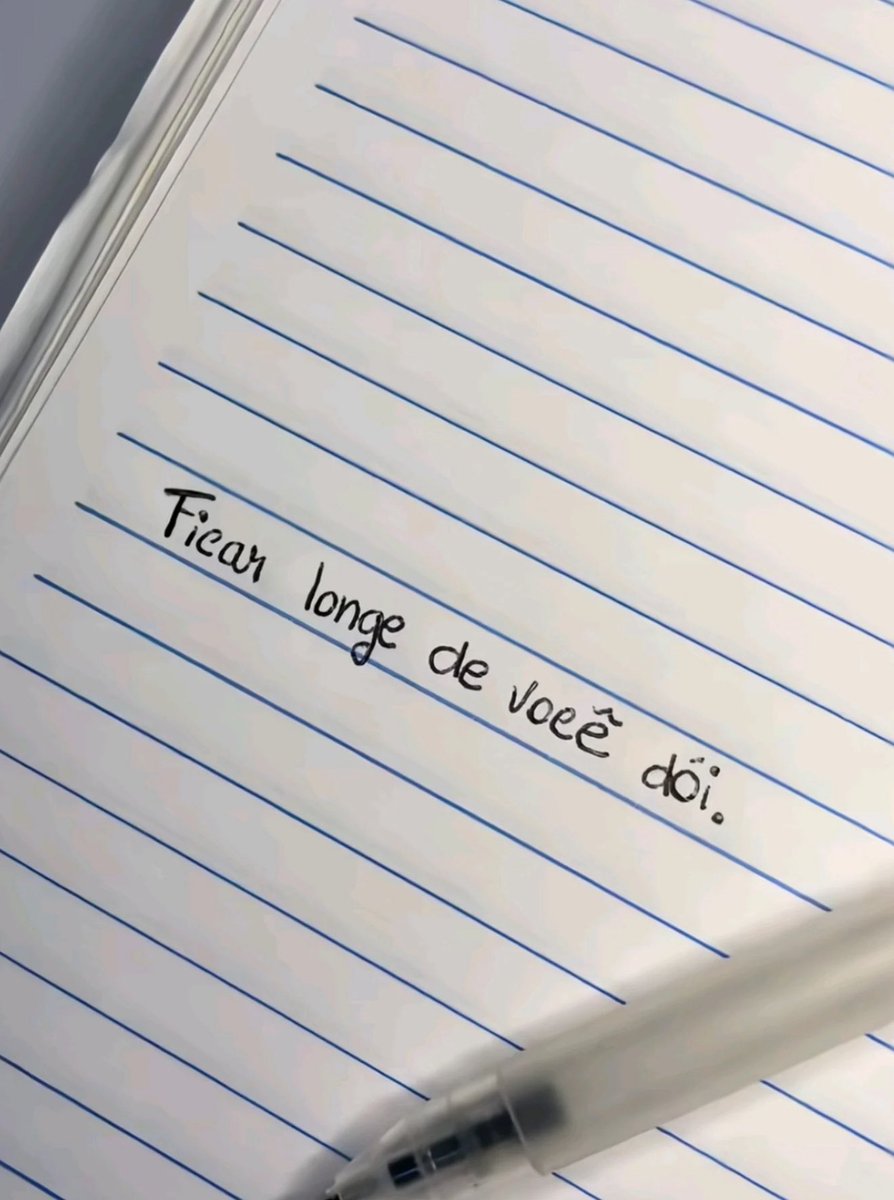 Ficar longe de você dói.